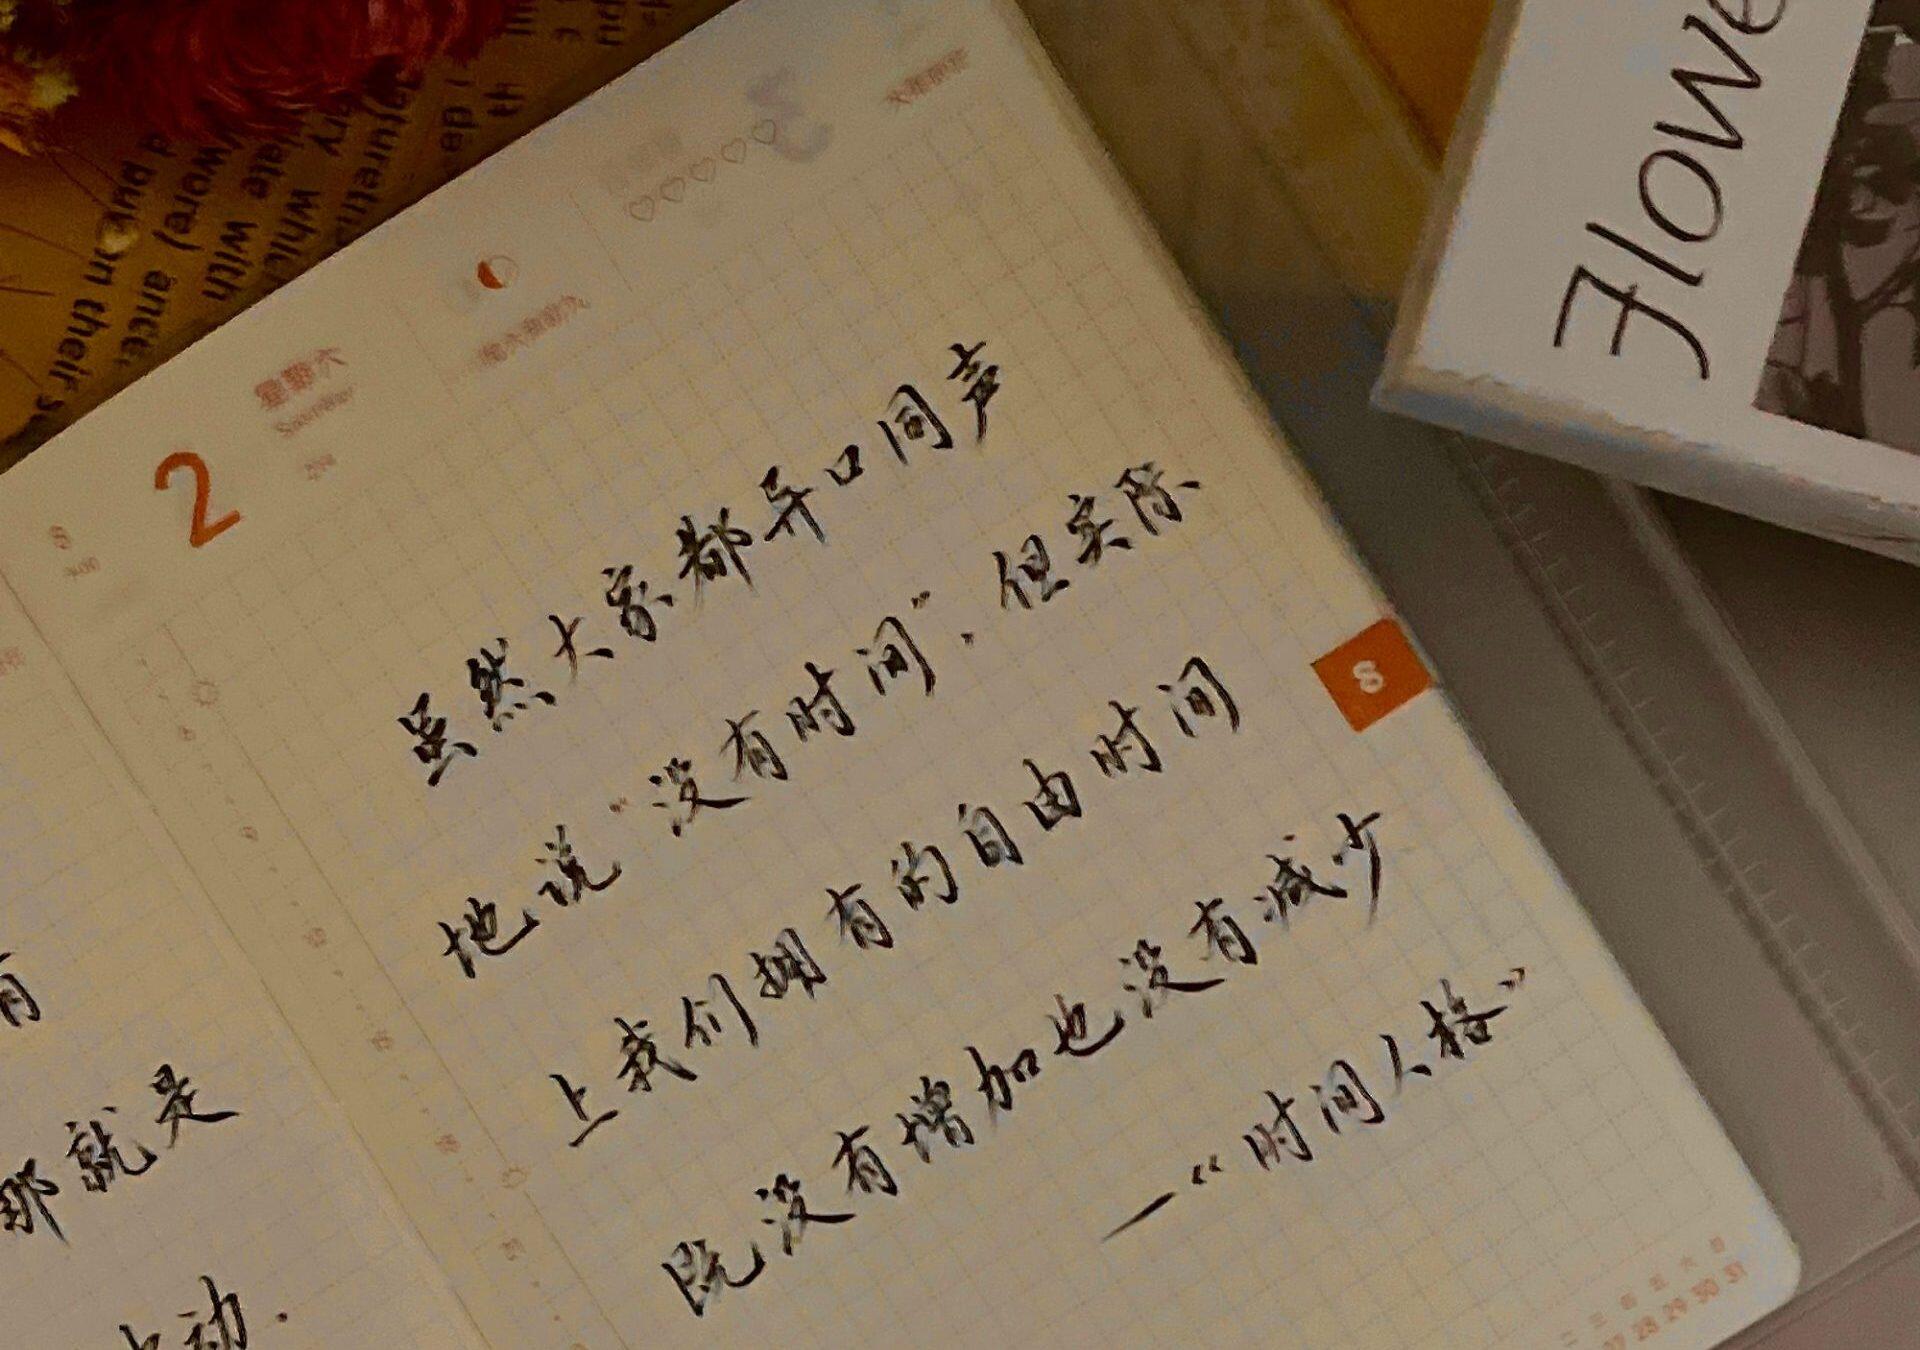 虽然大家都异口同声
地说“没有时间”. 但实际
上我们拥有的自由时间
既没有增加也没有减少
—“时间人格”
2
星期六
8
有
那就是
动.
Flowe
28 29 30 31